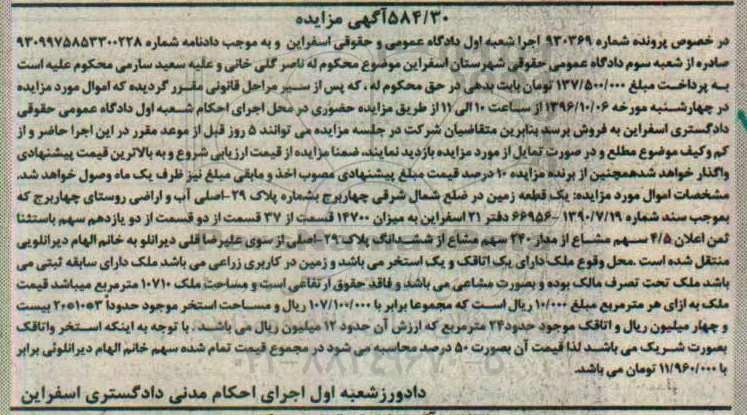 ۵۸۴/۳۰آگهی مزایده
در خصوص پرونده شماره ۹۳۰۳۶۹ اجرا شعبه اول دادگاه عمومی و حقوقی اسفراین و به موجب دادنامه شماره ۹۳۰۹۹۷۵۸۵۳۳۰۰۲۲۸
صادره از شعبه سوم دادگاه عمومی حقوقی شهرستان اسفراین موضوع محکوم له ناصر گلی خانی و علیه سعید سارمی محکوم علیه است
به پرداخت مبلغ ۱۳۷/۵۰۰/۰۰۰ تومان بابت بدهی در حق محکوم له ، که پس از سیر مراحل قانونی مقرر گردیده که اموال مورد مزایده
در چهارشنبه مورخه ۱۳۹۶/۱۰/۰۶ از ساعت ۱۰ الی ۱۱ از طریق مزایده حضوری در محل اجرای احکام شعبه اول دادگاه عمومی حقوقی
دادگستری اسفراین به فروش برسد بنابرین متقاضیان شرکت در جلسه مزایده می توانند ۵ روز قبل از موعد مقرر در این اجرا حاضر و از
کم وکیف موضوع مطلع و در صورت تمایل از مورد مزایده بازدید نمایند. ضمنا مزایده از قیمت ارزیابی شروع و به بالاترین قیمت پیشنهادی
واگذار خواهد شدهمچنین از برنده مزایده ۱۰ درصد قیمت مبلغ پیشنهادی مصوب اخذ و مابقی مبلغ نیز ظرف یک ماه وصول خواهد شد.
مشخصات اموال مورد مزایده: یک قطعه زمین در ضلع شمال شرقی چهاربرج بشماره پلاک ۲۹-اصلی آب و اراضی روستای چهاربرج که
بموجب سند شماره ۱۳۹۰/۷/۱۹-۶۶۹۵۶ دفتر ۲۱ اسفراین به میزان ۱۴۷۰۰ قسمت از ۳۷ قسمت از دو قسمت از دو یازدهم سهم باستثنا
ثمن اعلان ۴/۵ سهم مشاع از مدار ۲۴۰ سهم مشاع از ششدانگ پلاک ۲۹-اصلی از سوی علیرضا قلی دیرانلو به خانم الهام دیرانلویی
منتقل شده است .محل وقوع ملک دارای یک اتاقک و یک استخر می باشد و زمین در کاربری زراعی می باشد ملک دارای سابقه ثبتی می
باشد ملک تحت تصرف مالک بوده و بصورت مشاعی می باشد و فاقد حقوق ارتفاعی است و مساحت ملک ۱۰۷۱۰ مترمربع میباشد قیمت
ملک به ازای هر مترمربع مبلغ ۱۰/۰۰۰ ریال است که مجموعا برابر با ۱۰۷/۱۰۰/۰۰۰ ریال و مساحت استخر موجود حدوداً ۳*۱۰*۲۰ بیست
و چهار میلیون ریال و اتاقک موجود حدود۲۴ مترمربع که ارزش آن حدود ۱۲ میلیون ریال می باشد. با توجه به اینکه استخر واتاقک
بصورت شریک می باشد لذا قیمت آن بصورت ۵۰ درصد محاسبه می شود در مجموع قیمت تمام شده سهم خانم الهام دیرانلوئی برابر
با ۱۱/۹۶۰/۰۰۰ تومان می باشد.
دادورزشعبه اول اجرای احکام مدنی دادگستری اسفراین